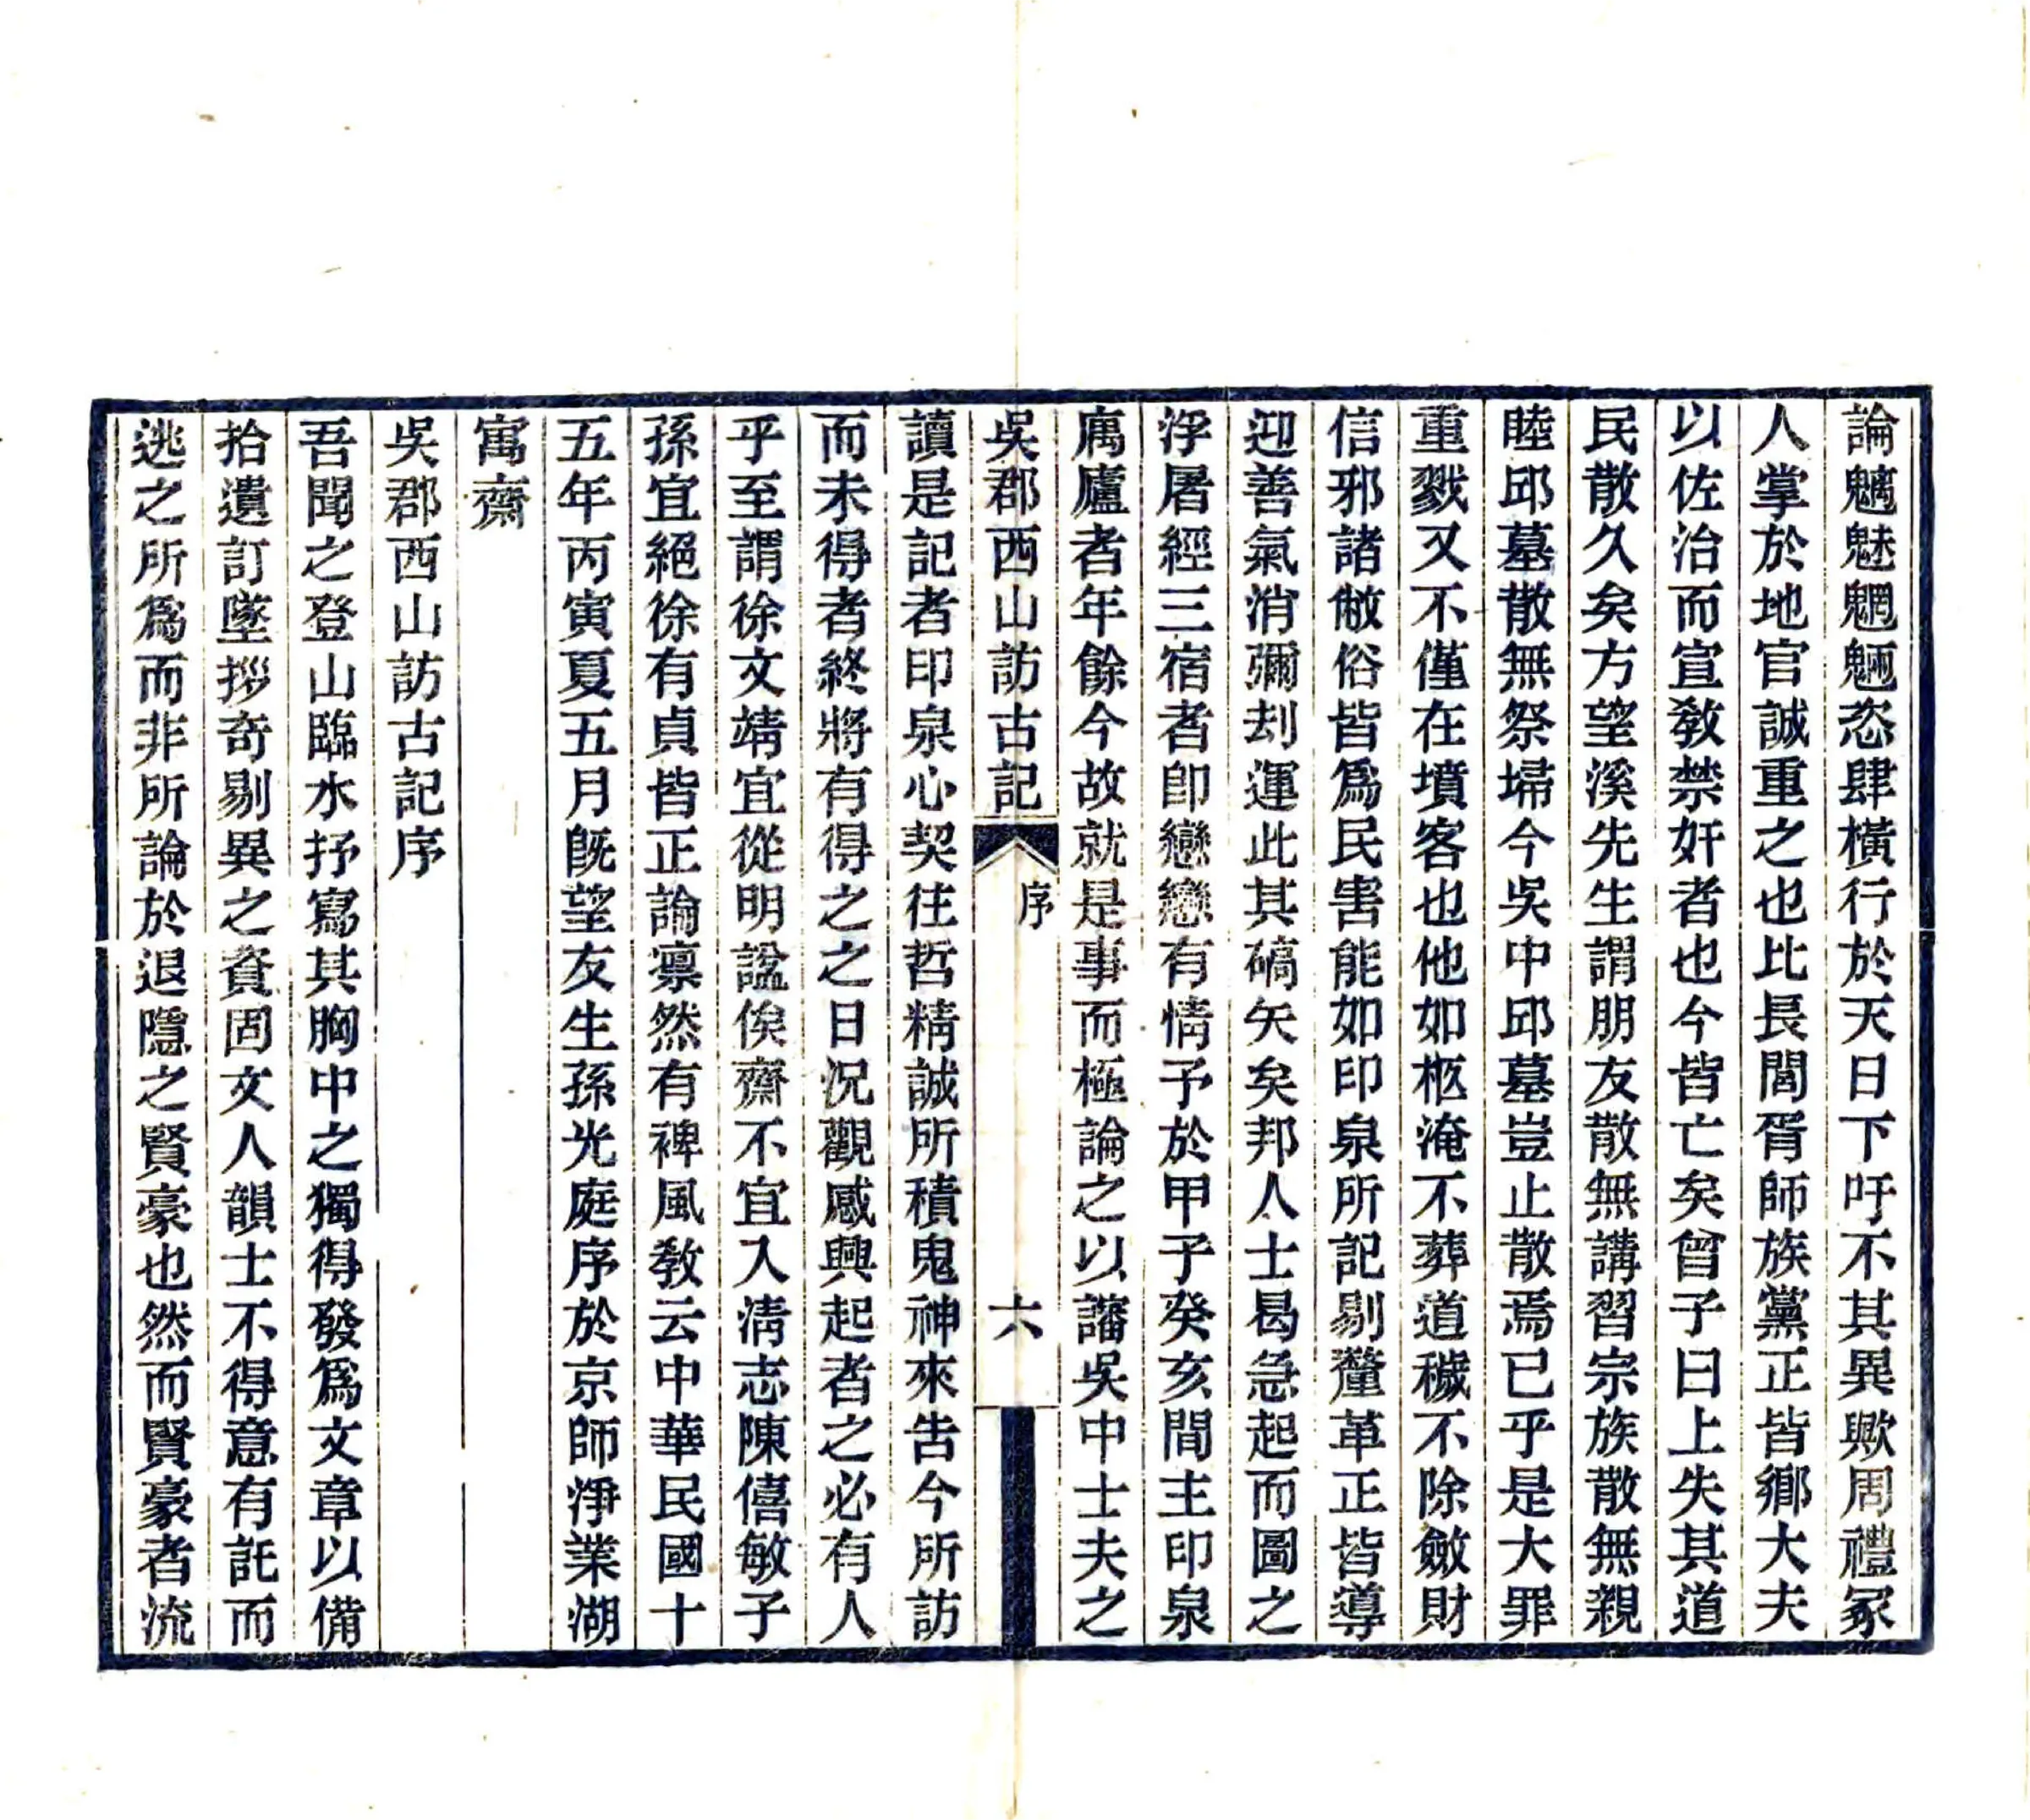 論魑魅魍魎恣肆橫行於天日下吁不其異歟周禮冢
人掌於地官誠重之也比長閭胥師族黨正皆鄉大夫
以佐治而宣敎禁奸者也今皆亡矣曾子曰上失其道
民散久矣方望溪先生謂朋友散無講習宗族散無親
睦邱墓散無祭埽今吳中邱墓豈止散焉已乎是大罪
重戮又不僅在墳客也他如柩淹不葬道穢不除斂財
信邪諸敝俗皆爲民害能如印泉所記剔釐革正皆導
迎善氣消彌刦運此其碻矢矣邦人士曷急起而圖之
浮屠經三宿者卽戀戀有情予於甲子癸亥間主印泉
廡廬者年餘今故就是事而極論之以讅吳中士夫之
吳郡西山訪古記
序
六
讀是記者印泉心契往哲精誠所積鬼神來告今所訪
而未得者終將有得之之日況觀感興起者之必有人
乎至謂徐文靖宜從明諡俟齋不宜入淸志陳僖敏子
孫宜絕徐有貞皆正論凛然有裨風敎云中華民國十
五年丙寅夏五月旣望友生孫光庭序於京師淨業湖
寓齋
吳郡西山訪古記序
吾聞之登山臨水抒寫其胸中之獨得發爲文章以備
拾遺訂墜搜奇剔異之資固文人韻士不得意有託而
逃之所爲而非所論於退隱之賢豪也然而賢豪者流